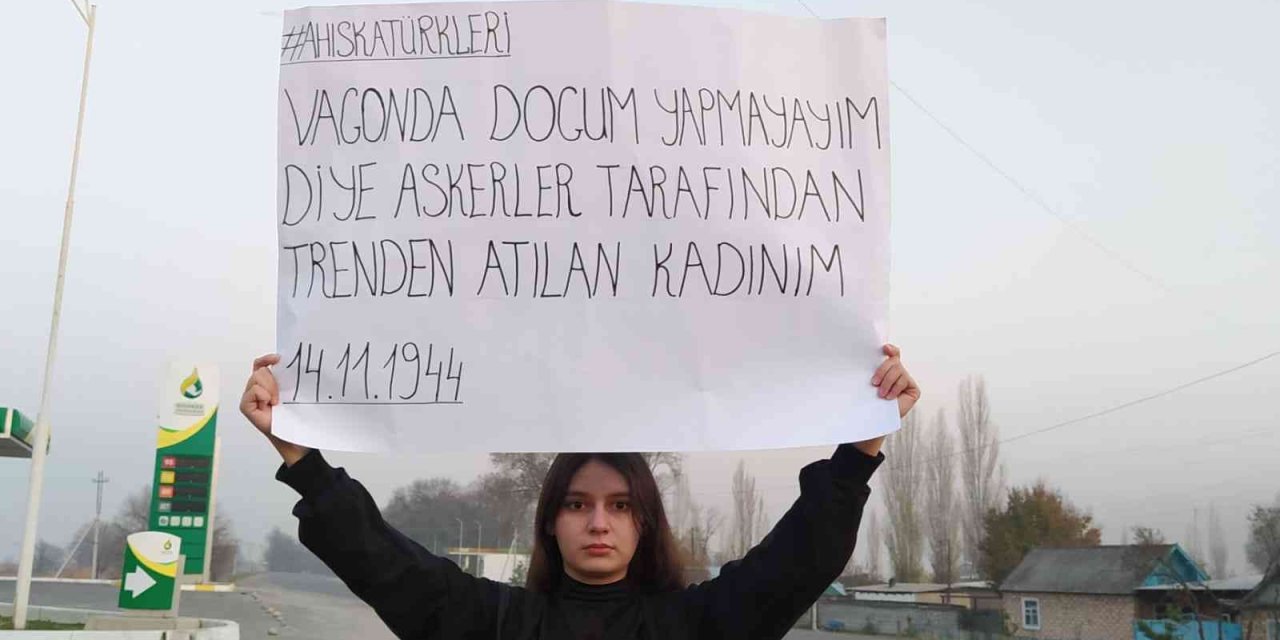 #AHISKATÜRKLERİ
VAGONDA DOGUM YAPMAYAYIM
DİYE ASKERLER TARAFINDAN
TRENDEN ATILAN KADINIM
14.11.1944